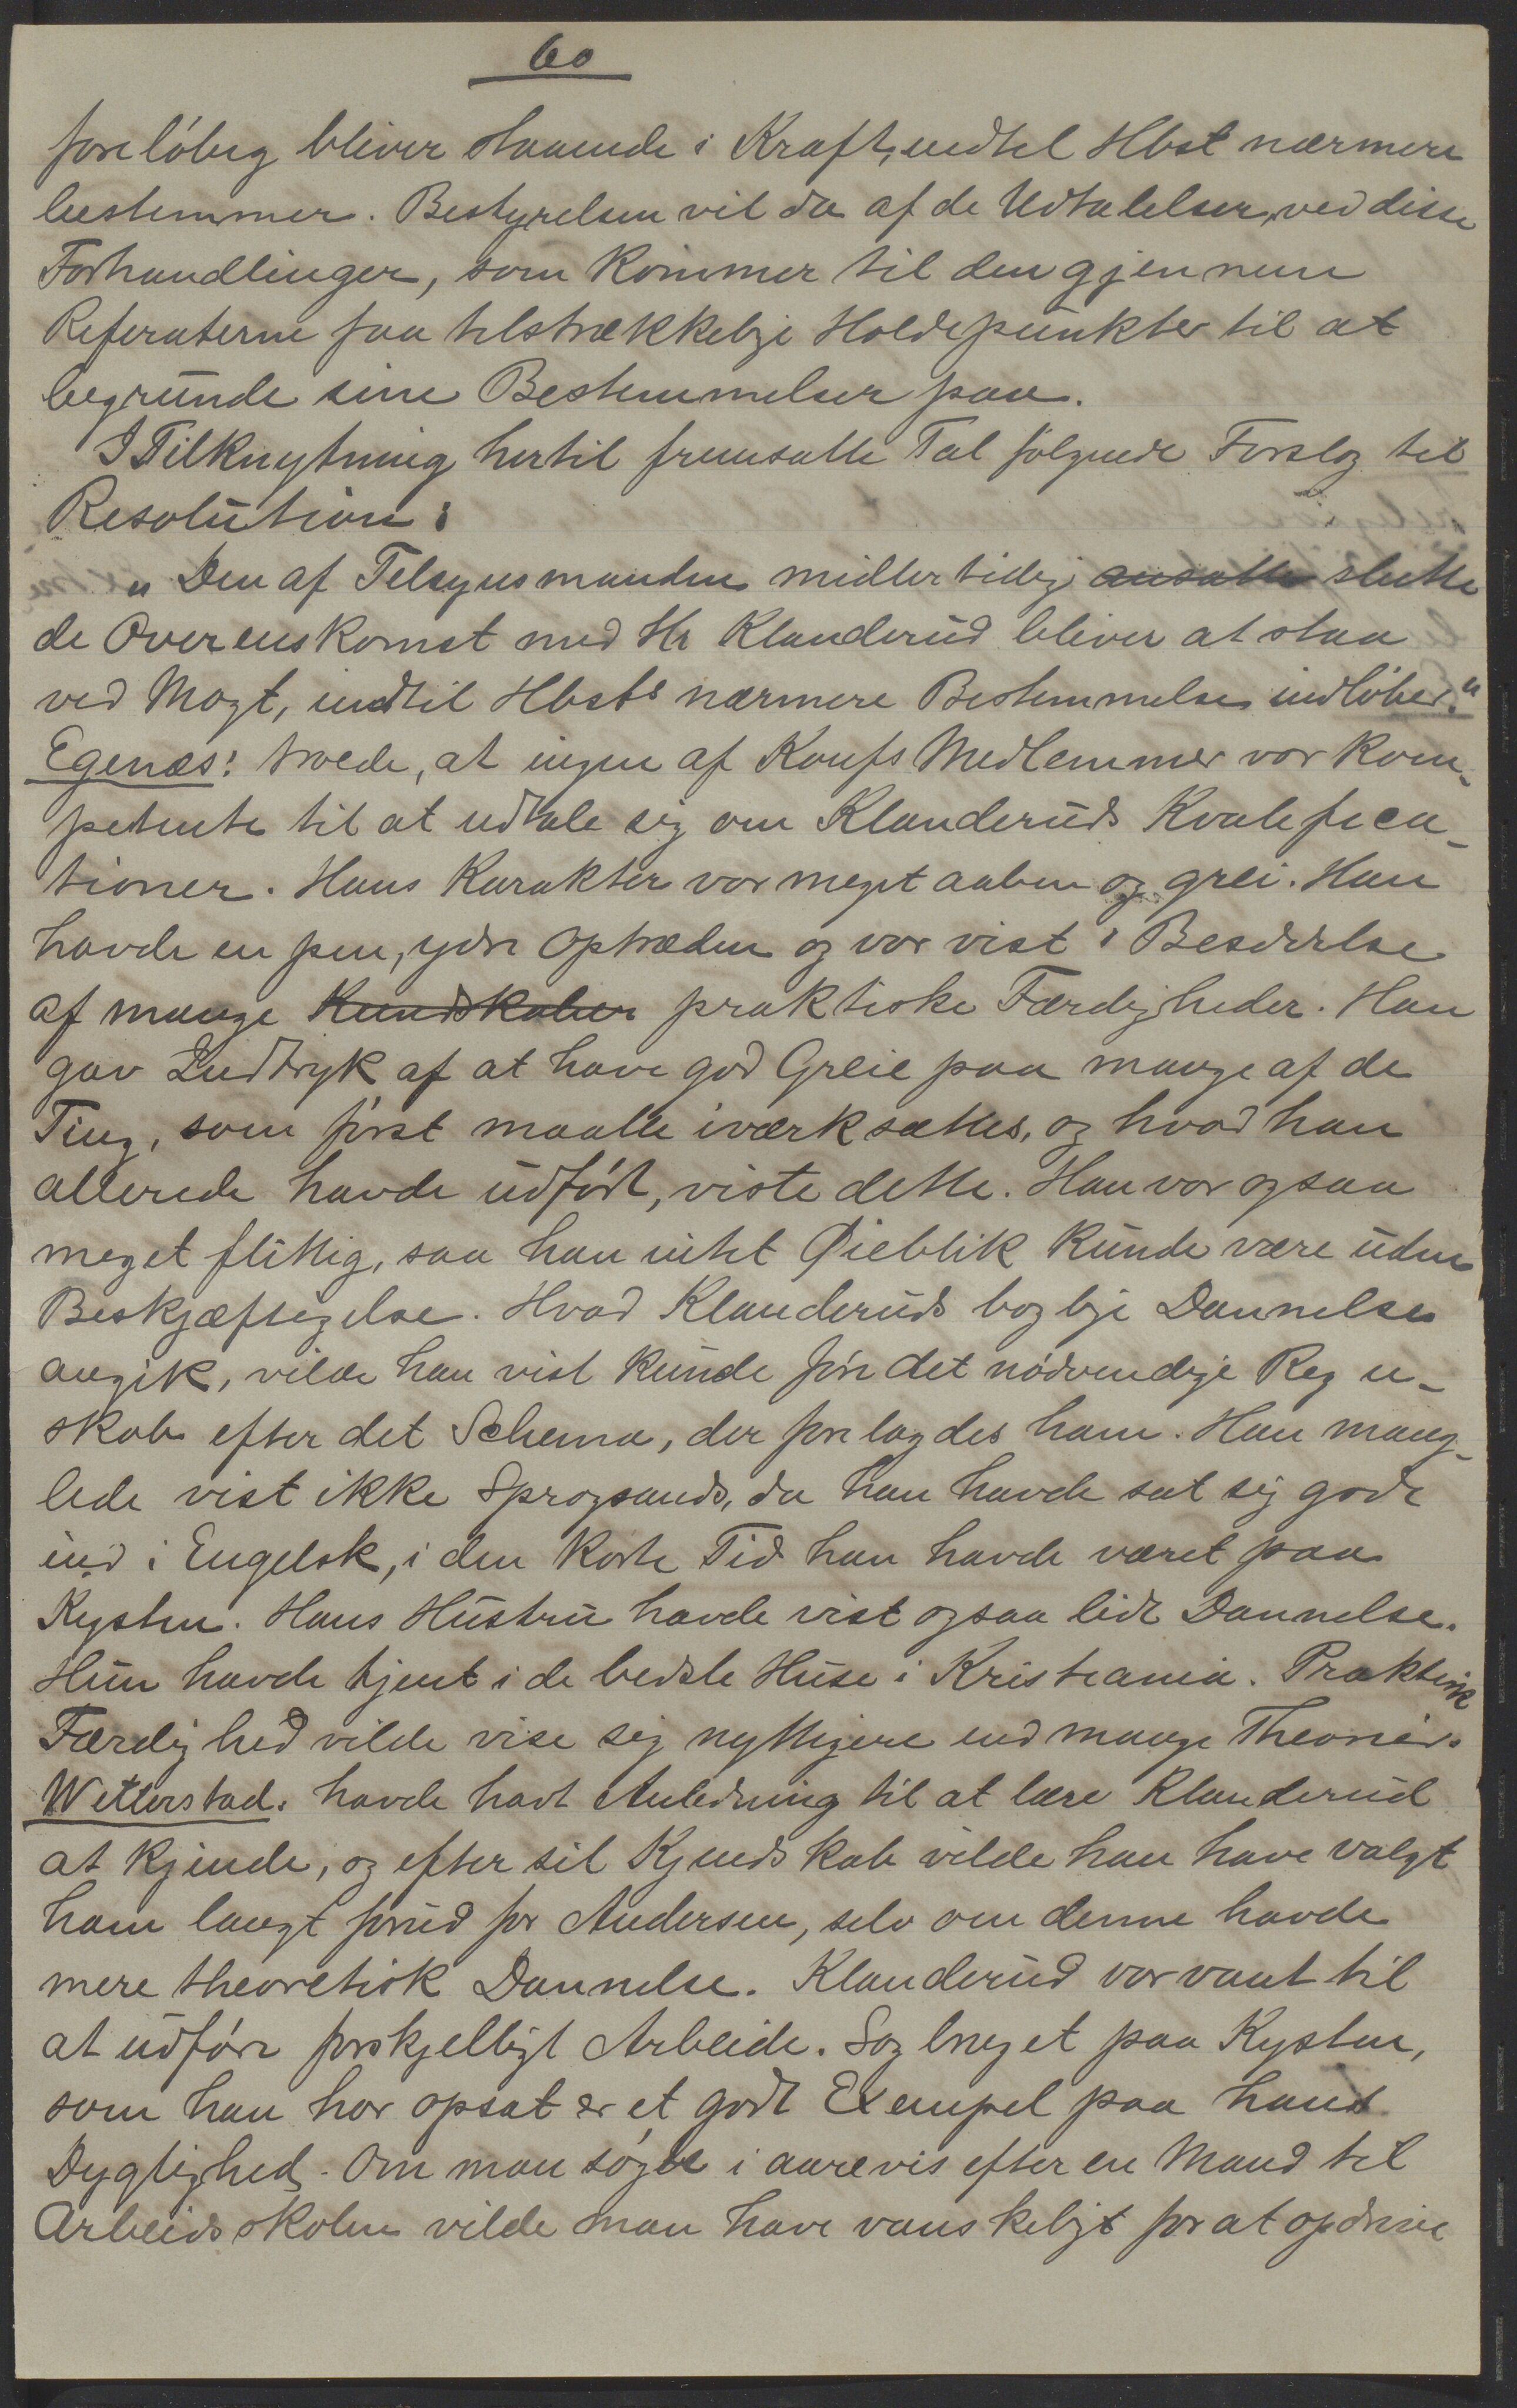 60
foreløbig bliver staaende i Kraft, indtil Hbst nærmere
bestemmer. Bestyrelsen vil da af de Udtalelser, ved disse
Forhandlinger, som kommer til den gjennem
Referaterne faa tilstrækkelige Holdepunkter til at
begrunde sine Bestemmelser paa.
I Tilknytning hertil fremsatte Tal følgende Forslag til
Resolution:
"Den af Tilsynsmanden midlertidig ansatte slutte
de Overenskomst med Hr Klanderud bliver at staa
ved Magt, indtil Hbsts nærmere Bestemmelse indløber."
Egenæs: troede, at ingen af Konfs Medlemmer var kom-
petente til at udtale sig om Klanderuds Kvalifica-
tioner. Hans Karakter var meget aaben og grei. Han
havde en pen, ydre Optræden og var vist i Besiddelse
af mange Kundskaber praktiske Færdigheder. Han
gav Indtryk af at have god Greie paa mange af de
Ting, som først maatte iværksættes, og hvad han
allerede havde udført, viste dette. Han var ogsaa
meget flittig, saa han intet Øieblik kunde være uden
Beskjæftigelse. Hvad Klanderuds boglige Dannelse
angik, vilde han vist kunde føre det nødvendige Regn-
skab efter det Schema, der forelagdes ham. Han mang-
lede vist ikke Sprogsands, da han havde sat sig godt
ind i Engelsk, i den korte Tid han havde været paa
Kysten. Hans Hustru havde vist ogsaa lidt Dannelse.
Hun havde tjent i de bedste Huse i Kristiania. Praktisk
Færdighed vilde vise sig nyttigere end mange Theorier.
Wetterstad. havde havt Anledning til at lære Klanderud
at kjende, og efter sit Kjendskab vilde han have valgt
ham langt forud for Andersen, selv om denne havde
mere theoretisk Dannelse. Klanderud var vant til
at udføre forskjelligt Arbeide. Sagbruget paa Kysten,
som han har opsat er et godt Exempel paa hans
Dygtighed. Om man søgte i aarevis efter en Mand til
Arbeidsskolen vilde man have vanskeligt for at opdrive